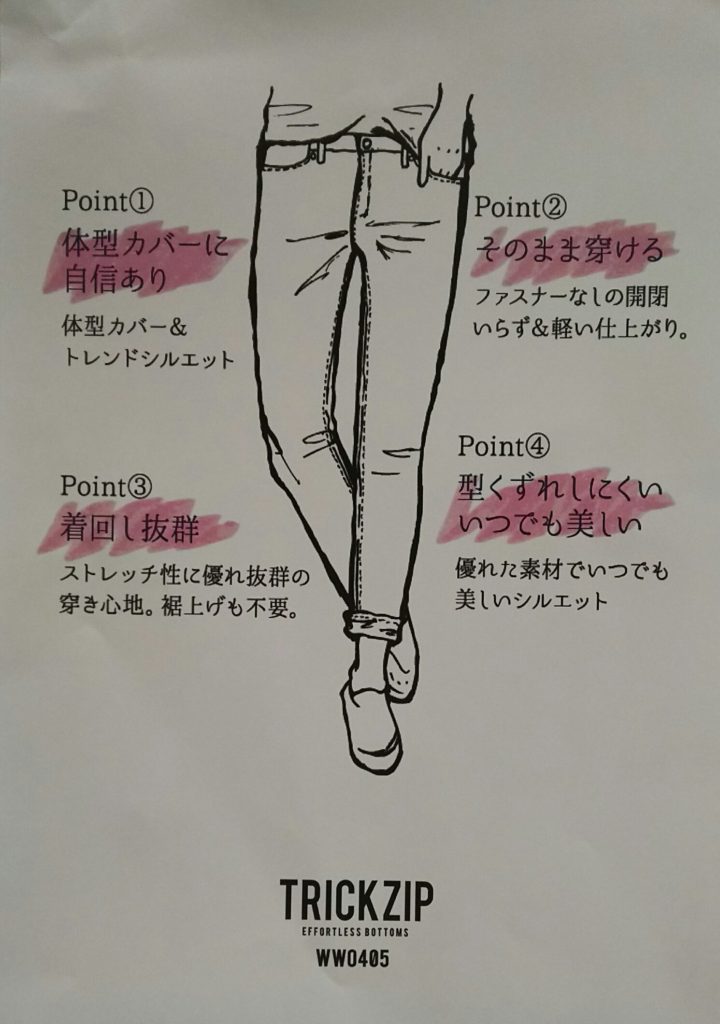 Point①
体型カバーに
自信あり
体型カバー&
トレンドシルエット
Point②
そのまま穿ける
ファスナーなしの開閉
いらず&軽い仕上がり。
Point③
着回し抜群
ストレッチ性に優れ抜群の
穿き心地。裾上げも不要。
Point④
型くずれしにくい
いつでも美しい
優れた素材でいつでも
美しいシルエット
TRICKZIP
EFFORTLESS BOTTOMS
WW0405